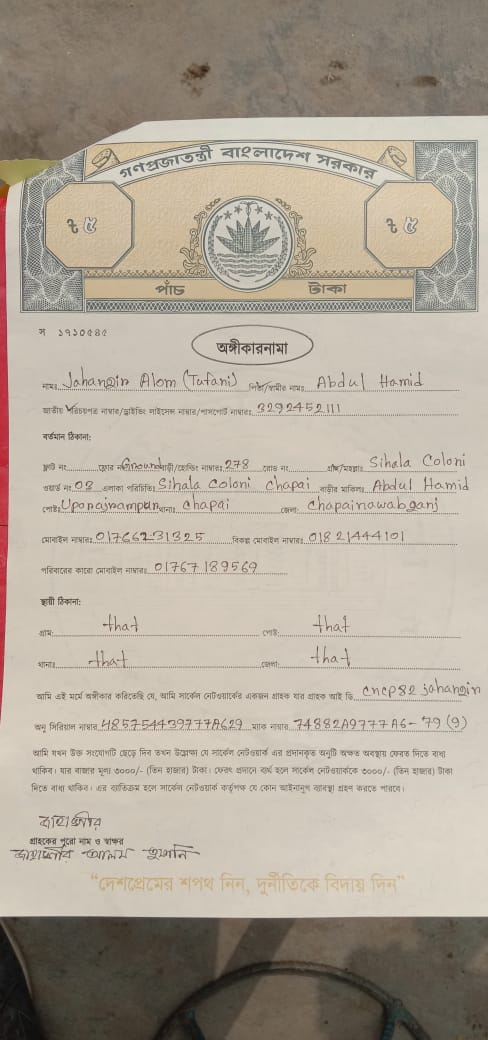 গণপ্রজাতন্ত্রী বাংলাদেশ সরকার
৳ ৫ ৳ ৫
পাঁচ টাকা
স ১৭১০৫৪৫
অঙ্গীকারনামা
নামঃ Jahangir Alom (Tufani) পিতা/স্বামীর নামঃ Abdul Hamid
জাতীয় পরিচয়পত্র নাম্বার/ড্রাইভিং লাইসেন্স নাম্বার/পাসপোর্ট নাম্বারঃ 3292452111
বর্তমান ঠিকানা:
ফ্লাট নং ফ্লোর নং Ground বাড়ী/হোল্ডিং নাম্বারঃ 278 রোড নং গ্রাম/মহল্লাঃ Sihala Coloni
ওয়ার্ড নং 03 এলাকা পরিচিতিঃ Sihala Coloni Chapai বাড়ীর মালিকঃ Abdul Hamid
পোষ্টঃ Uporajrampur থানাঃ Chapai জেলাঃ Chapainawabganj
মোবাইল নাম্বারঃ 01766231325 বিকল্প মোবাইল নাম্বারঃ 01821444101
পরিবারের কারো মোবাইল নাম্বারঃ 01767189569
স্থায়ী ঠিকানা:
গ্রাম: that পোষ্ট: that
থানাঃ that জেলা: that
আমি এই মর্মে অঙ্গীকার করিতেছি যে, আমি সার্কেল নেটওয়ার্কের একজন গ্রাহক যার গ্রাহক আই ডি cncp82 jahangir
অনু সিরিয়াল নাম্বার 485754439777A629 ম্যাক নাম্বার 74882A9777A6-79 (9)
আমি যখন উক্ত সংযোগটি ছেড়ে দিব তখন উল্লেক্ষ্য যে সার্কেল নেটওয়ার্ক এর প্রদানকৃত অনুটি অক্ষত অবস্থায় ফেরত দিতে বাধ্য
থাকিব। যার বাজার মূল্য ৩০০০/- (তিন হাজার) টাকা। ফেরৎ প্রদানে ব্যর্থ হলে সার্কেল নেটওয়ার্ককে ৩০০০/- (তিন হাজার) টাকা
দিতে বাধ্য থাকিব। এর ব্যতিক্রম হলে সার্কেল নেটওয়ার্ক কর্তৃপক্ষ যে কোন আইনানুগ ব্যাবস্থা গ্রহণ করতে পারবে।
জাহাঙ্গীর
গ্রাহকের পুরো নাম ও স্বাক্ষর
জাহাঙ্গীর আলম তুফানি
“দেশপ্রেমের শপথ নিন, দুর্নীতিকে বিদায় দিন”